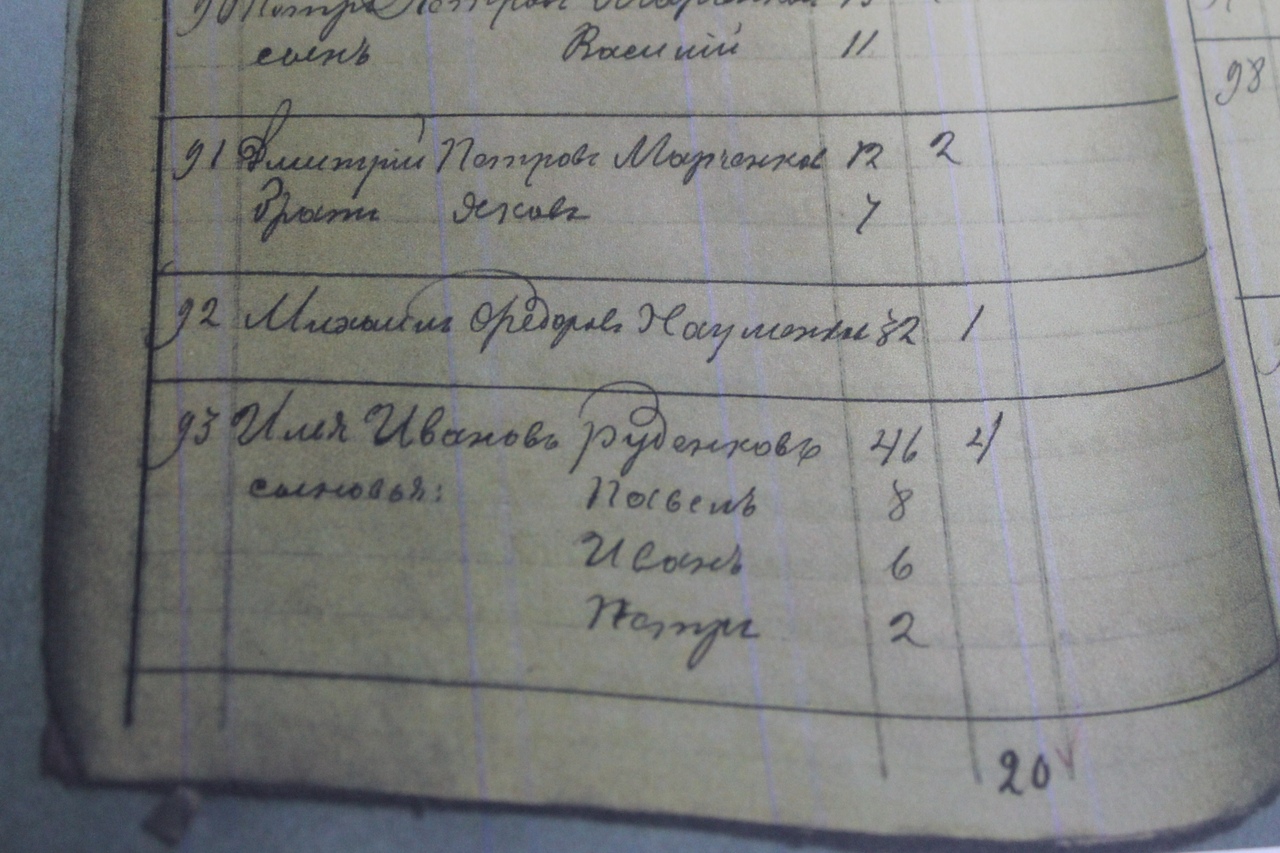 90 Петръ Петровъ
сынъ Василий 11
98
91 Дмитрій Петровъ Марченко 12 2
братъ Яковъ 7
92 Михаилъ Федоровъ Науменко 32 1
93 Илья Ивановъ Руденковъ 46 4
сыновья: Павелъ 8
Иванъ 6
Петръ 2
20